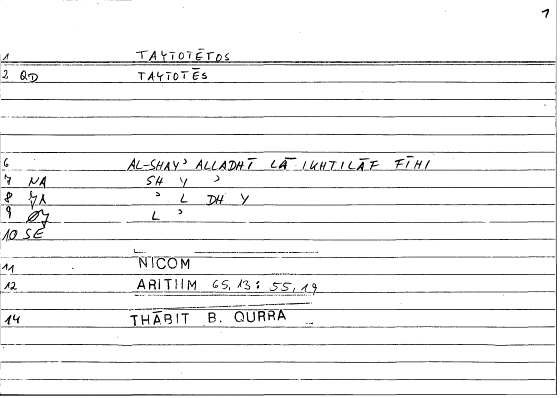 1
1 TAYTOTĒTOS
2 QD TAYTOTĒS
6 AL-SHAYʾ ALLADHĪ LĀ IKHTILĀF FĪHI
7 NA SH Y ʾ
8 ʾ L DH Y
9 L ʾ
10 SE
11 NICOM
12 ARITIIM 65,13 : 55,19
14 THĀBIT B. QURRA